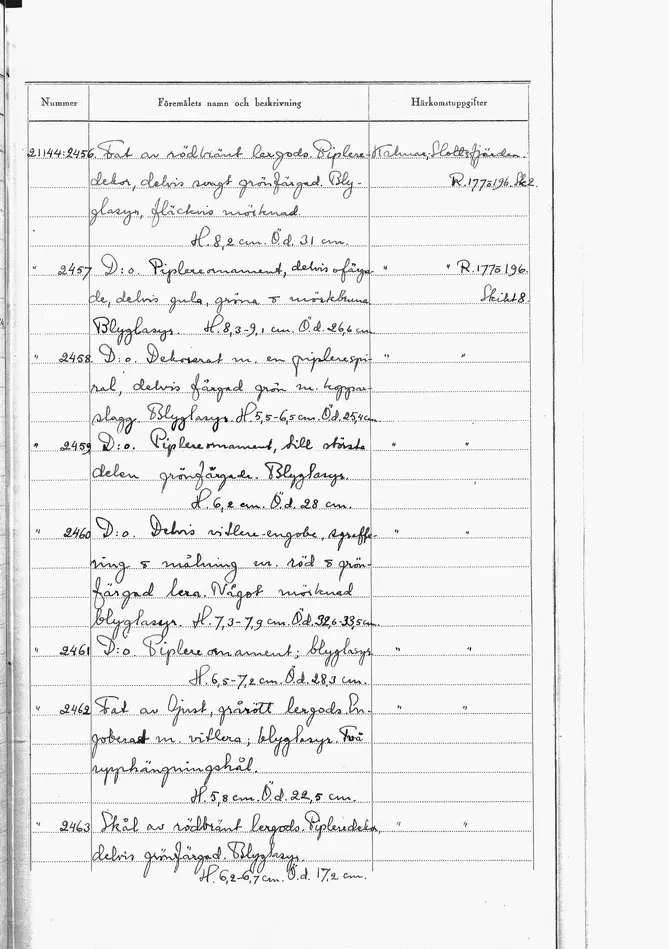 Nummer Föremålets namn och beskrivning Härkomstuppgifter
21144:2456. Fat av rödbränt lergods. Piplere- Kalmar, Slottsfjärden.
dekor, delvis svagt grönfärgad. Bly- R.1775196. Sk2.
glasyr, fläckvis mörknad.
H. 8,2 cm. Ö.d. 31 cm.
" 2457 D:o. Piplereornament, delvis ofärga- " " R.1775196.
de, delvis gula, gröna o mörkbruna Skikt 8.
Blyglasyr. H. 8,3-9,1 cm. Ö.d. 26,6 cm
" 2458. D:o. Dekorerat m. en piplerespi- " "
ral, delvis färgad grön m. koppar-
slagg. Blyglasyr. H. 5,5-6,5 cm. Ö.d. 25,4 cm.
" 2459 D:o. Piplereornament, till största " "
delen grönfärgade. Blyglasyr.
H. 6,2 cm. Ö.d. 28 cm.
" 2460 D:o. Delvis vitlere-engobe, sgraffe- " "
ring o målning m. röd o grön-
färgad lera. Något mörknad
blyglasyr. H. 7,3-7,9 cm. Ö.d. 32,6-33,5 cm.
" 2461 D:o. Piplereornament; blyglasyr " "
H. 6,5-7,2 cm. Ö.d. 28,3 cm.
" 2462 Fat av ljust, grårött lergods. En- " "
goberat m. vitlera; blyglasyr. Två
upphängningshål.
H. 5,8 cm. Ö.d. 22,5 cm.
" 2463 Skål av rödbränt lergods. Pipleredekor, " "
delvis grönfärgad. Blyglasyr.
H. 6,2-6,7 cm. Ö.d. 17,2 cm.